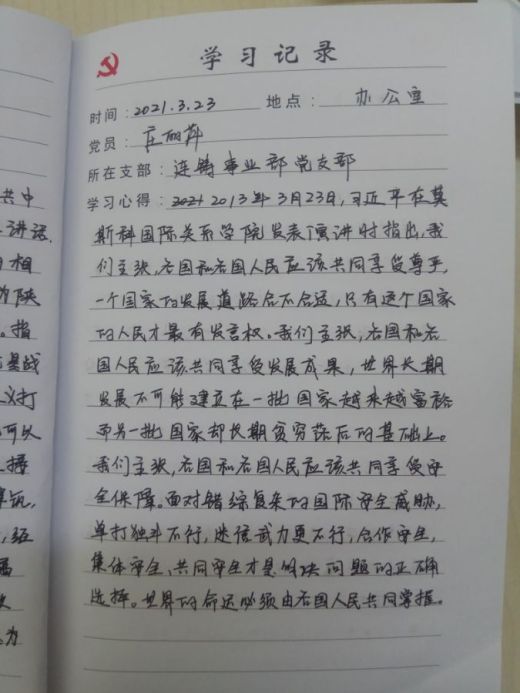 学习记录
时间:2021.3.23 地点: 办公室
党员:庄丽萍
所在支部:连铸事业部党支部
学习心得:2021 2013年3月23日,习近平在莫
斯科国际关系学院发表演讲时指出,我
们主张,各国和各国人民应该共同享受尊严,
一个国家的发展道路合不合适,只有这个国家
的人民才最有发言权。我们主张,各国和各
国人民应该共同享受发展成果,世界长期
发展不可能建立在一批国家越来越富裕
而另一批国家却长期贫穷落后的基础上。
我们主张,各国和各国人民应该共同享受安
全保障。面对错综复杂的国际安全威胁,
单打独斗不行,迷信武力更不行,合作安全,
集体安全、共同安全才是解决问题的正确
选择。世界的命运必须由各国人民共同掌握。
共中
讲话.
相
为陕
。指
基战
义打
可以